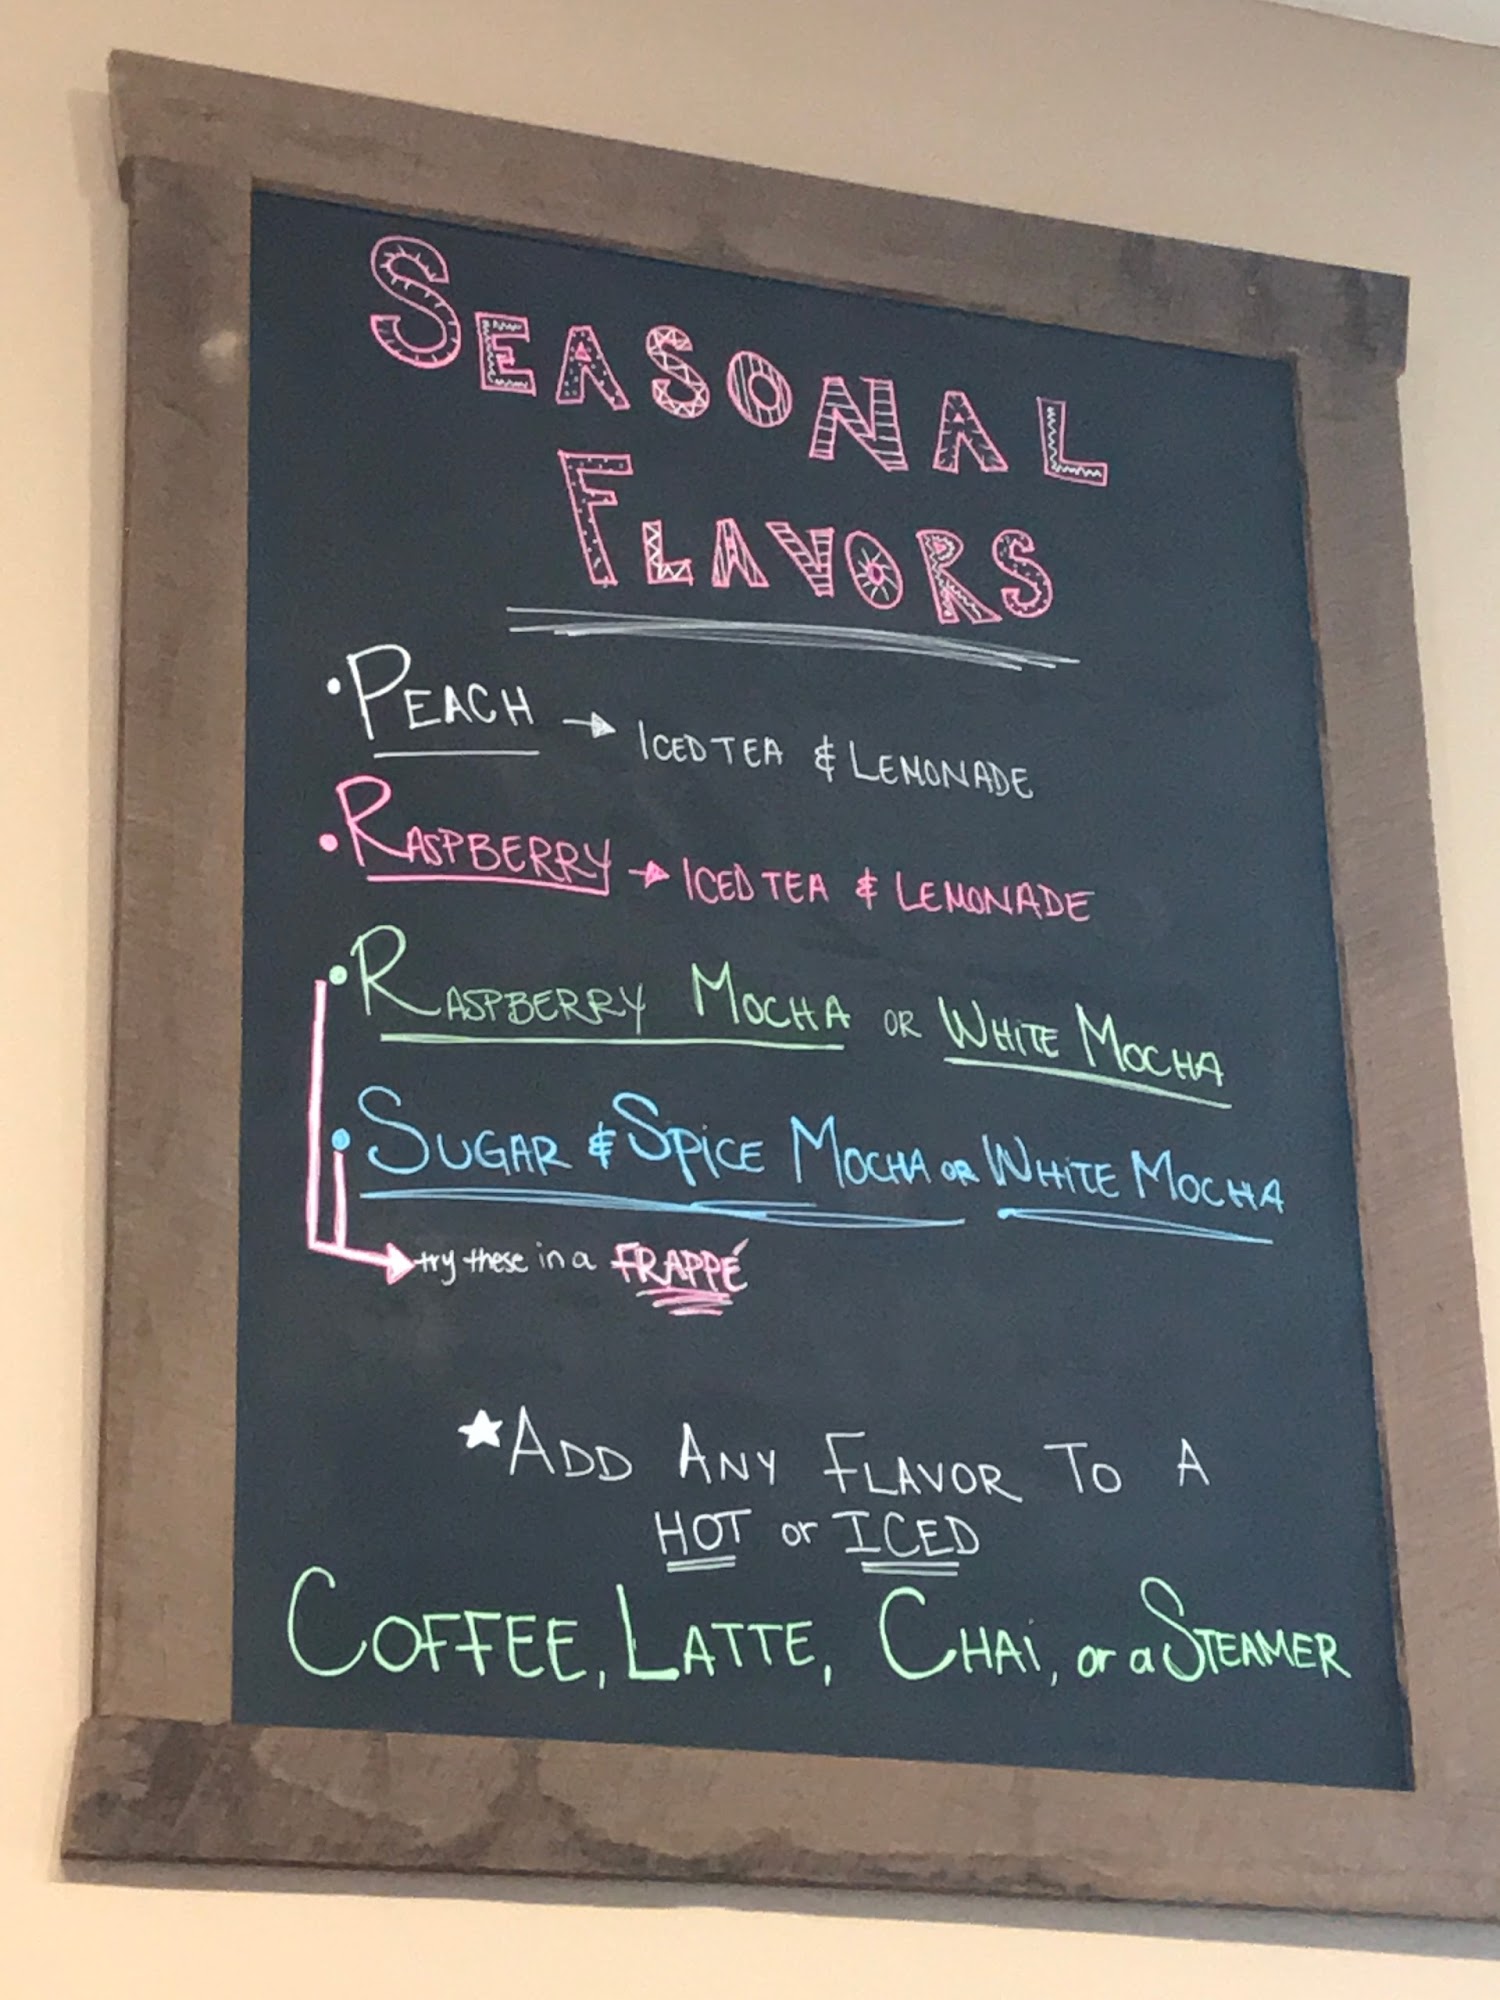 SEASONAL
FLAVORS
• PEACH → ICED TEA & LEMONADE
• RASPBERRY → ICED TEA & LEMONADE
• RASPBERRY MOCHA OR WHITE MOCHA
• SUGAR & SPICE MOCHA OR WHITE MOCHA
→ try these in a FRAPPÉ
★ ADD ANY FLAVOR TO A
HOT or ICED
COFFEE, LATTE, CHAi, or a STEAMER